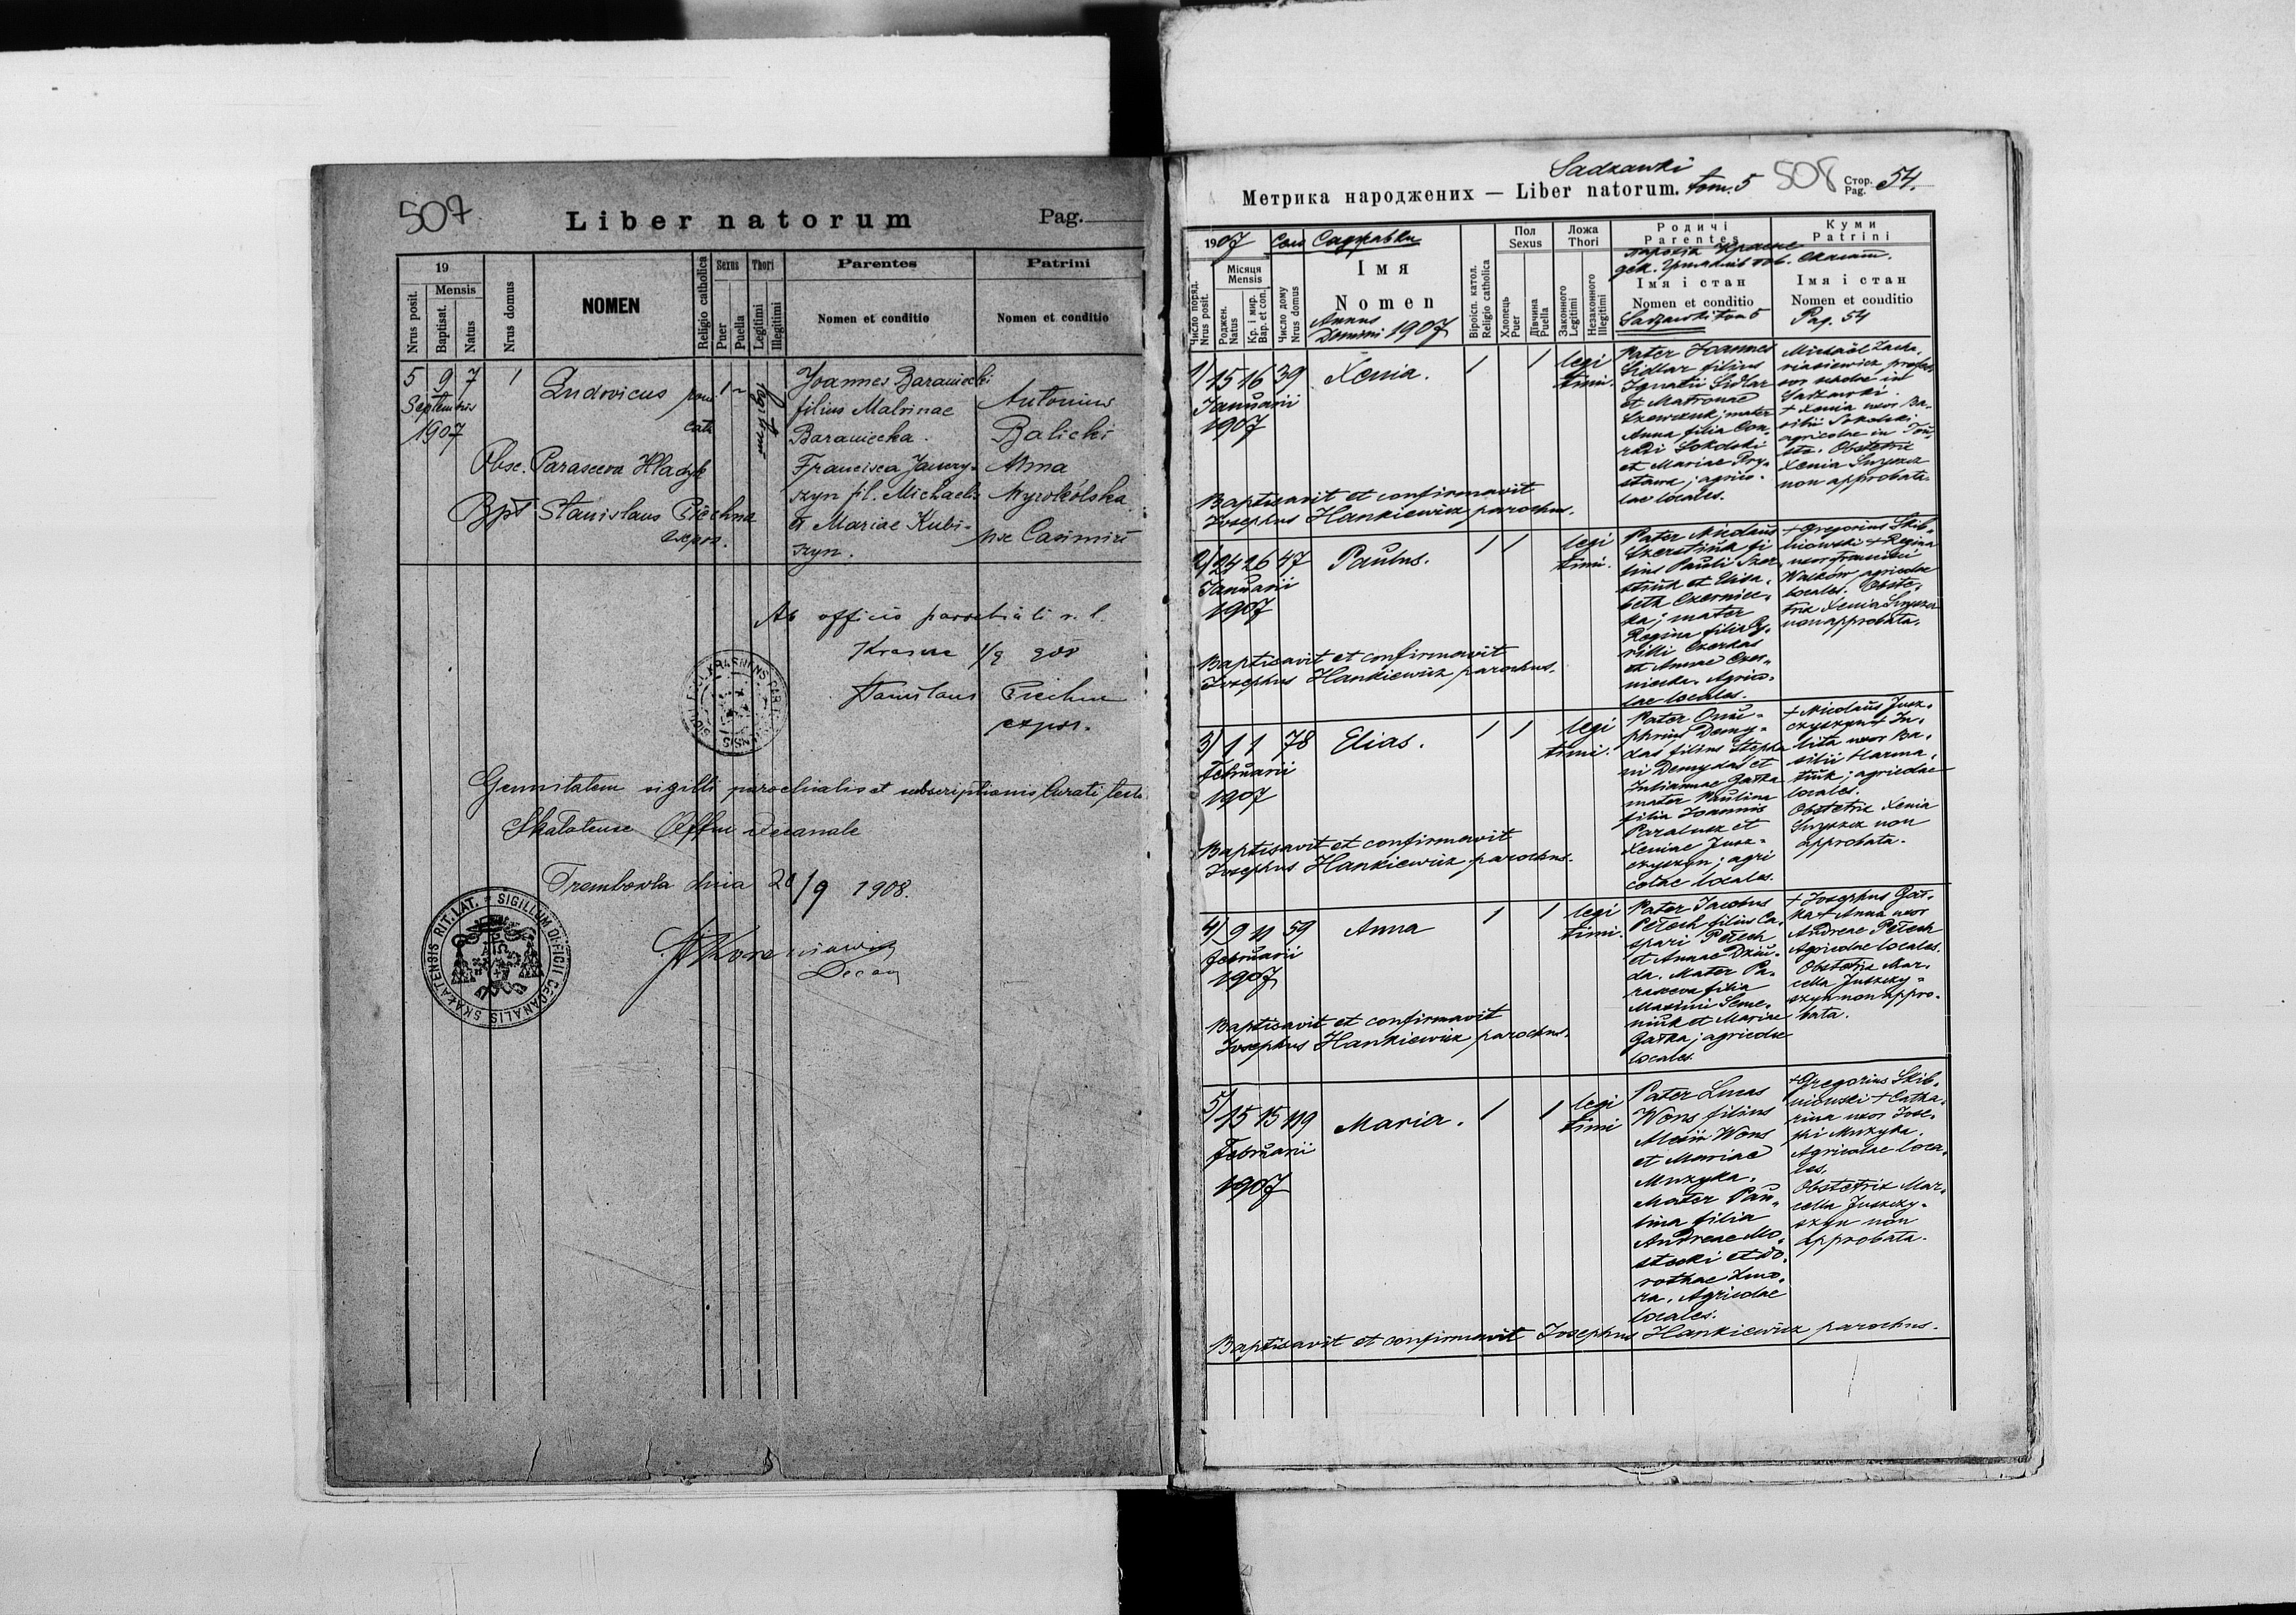 507
Liber natorum
Pag.
19
Mensis
Nrus posit.
Baptisat.
Natus
Nrus domus
NOMEN
Religio catholica
Sexus
Puer
Puella
Thori
Legitimi
Illegitimi
Parentes
Nomen et conditio
Patrini
Nomen et conditio
5 9 7 1 Ludovicus rom
Septembris
1907
cath
legitimi
Obse. Parasceva Hladyk
Bpt Stanislaus Piechna
expos.
Joannes Baraniecki
filius Malvinae
Baraniecka.
Francisca Jawry-
szyn fil. Michaelis
et Mariae Kubi-
szyn.
Antonius
Balicki
Anna
Wyrobólska
Casimiri
Ab officio parochiali r. l.
Krasne 1/9 908
Stanislaus Piechna
expos.
Genuitatem sigilli parochialis et subscriptionis Curati testa
Skalatense Offm decanale
Trembowla dnia 20/9 1908.
Decan
SIGILLUM OFFICII DECANALIS SKAŁATENSIS RIT. LAT.
Sadzawki
Метрика народжених — Liber natorum. tom. 5 508 Стор. Pag. 54.
1907 Село Саджавки
Число поряд.
Nrus posit.
Місяця
Mensis
Роджен.
Natus
Кр. і мир.
Bap. et con.
Число дому
Nrus domus
Імя
Nomen
Annus
Domini 1907
Віроісп. катол.
Religio catholica
Пол
Sexus
Хлопець
Puer
Дівчина
Puella
Ложа
Thori
Законного
Legitimi
Незаконного
Illegitimi
Родичі
Parentes
парохія Красне
Імя і стан
Nomen et conditio
Sadzawki tom 5
Куми
Patrini
Імя і стан
Nomen et conditio
Pag. 54
1) 15 16 39 Xenia. 1 1 legi
timi.
Januarii
1907
Pater Joannes
Sidlar filius
Ignatii Sidlar
et Matronae
Szewczuk; mater
Anna filia Con-
radi Sokolski
et Mariae Pry-
stawa; agrico-
lae locales.
Michaël Zacha-
riasiewicz profes
sor scholae in
Sadzawki.
+ Xenia uxor Ba-
silii Sokolski
agricolae in
Obstetrix
Xenia Snyszcz
non approbata.
Baptisavit et confirmavit
Josephus Hankiewicz parochus.
2) 24 26 47 Paulus. 1 1 legi
timi.
Januarii
1907
Pater Nicolaus
Szerstiuk fi
lius Pauli Szer
stiuk et Elisa-
beth Czerniec-
ka; mater
Regina filia Cy-
rilli Czerkas
et Annae Czer-
niecka. Agrico-
lae locales.
+ Gregorius Skib-
niowski + Regina
uxor Francisci
Walków agricolae
locales. Obste-
trix Xenia Snyszcz
non approbata.
Baptisavit et confirmavit
Josephus Hankiewicz parochus.
3) 1 1 78 Elias. 1 1 legi
timi.
Februarii
1907
Pater Onu-
phrius Demy-
das filius Stepha
ni Demydas et
Julianae Gałka
mater Paulina
filia Joannis
Paralusz et
Xeniae Jusz-
czyszyn; agri
colae locales.
+ Nicolaus Jusz-
czyszyn + Ju-
litta uxor Ba-
silii Harma-
tiuk; agricolae
locales.
Obstetrix Xenia
Snyszcz non
approbata.
Baptisavit et confirmavit
Josephus Hankiewicz parochus.
4) 9 11 59 Anna 1 1 legi
timi.
Februarii
1907
Pater Jacobus
Pełech filius Ca-
spari Pełech
et Annae Dziu-
da. Mater Pa-
rasceva filia
Maximi Seme-
niuk et Mariae
Gałka; agricolae
locales.
+ Josephus Gał-
ka + Anna uxor
Andreae Pełech
Agricolae locales.
Obstetrix Mar-
cella Juszczy-
szyn non appro-
bata.
Baptisavit et confirmavit
Josephus Hankiewicz parochus.
5) 15 15 119 Maria. 1 1 legi
timi
Februarii
1907
Pater Lucas
Wons filius
Alexii Wons
et Mariae
Muzyka.
Mater Pau-
lina filia
Andreae Mo-
stocki et Do-
rotheae Zmo-
ra. Agricolae
locales.
+ Gregorius Skib-
niowski + Catha-
rina uxor Jose-
phi Muzyka.
Agricolae loca-
les.
Obstetrix Mar-
cella Juszczy-
szyn non
approbata.
Baptisavit et confirmavit Josephus Hankiewicz parochus.